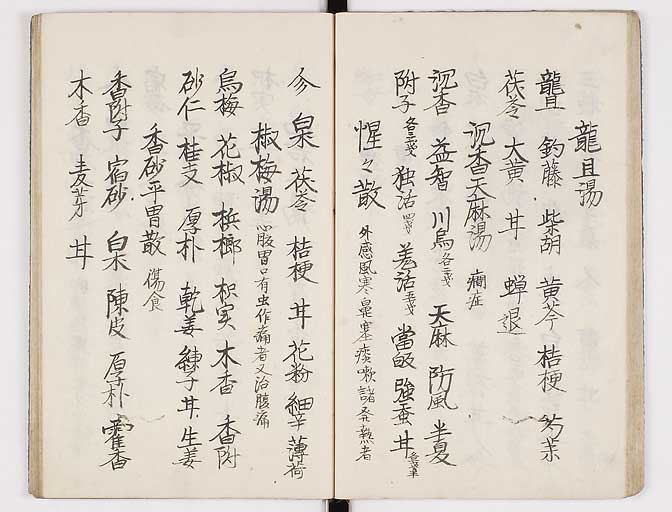 龍且湯
龍且 釣藤 柴胡 黄芩 桔梗 芍茱
茯苓 大黄 丼 蝉退
沉香天麻湯 癇症
沉香 益智 川烏各二戔 天麻 防風 半夏
附子各三戔 独活四戔 羗活五戔 當皈 強蚕 丼
惺々散 外感風寒鼻塞痰嗽諸発熱者
参 白朮 茯苓 桔梗 丼 花粉 細辛 薄荷
椒梅湯 心腹胃口有虫作痛者又治腹痛
烏梅 花椒 梹榔 枳実 木香 香附
砂仁 桂支 厚朴 乾姜 練子 丼 生姜
香砂平胃散 傷食
香附子 宿砂 白朮 陳皮 厚朴 霍香
木香 麦芽 丼